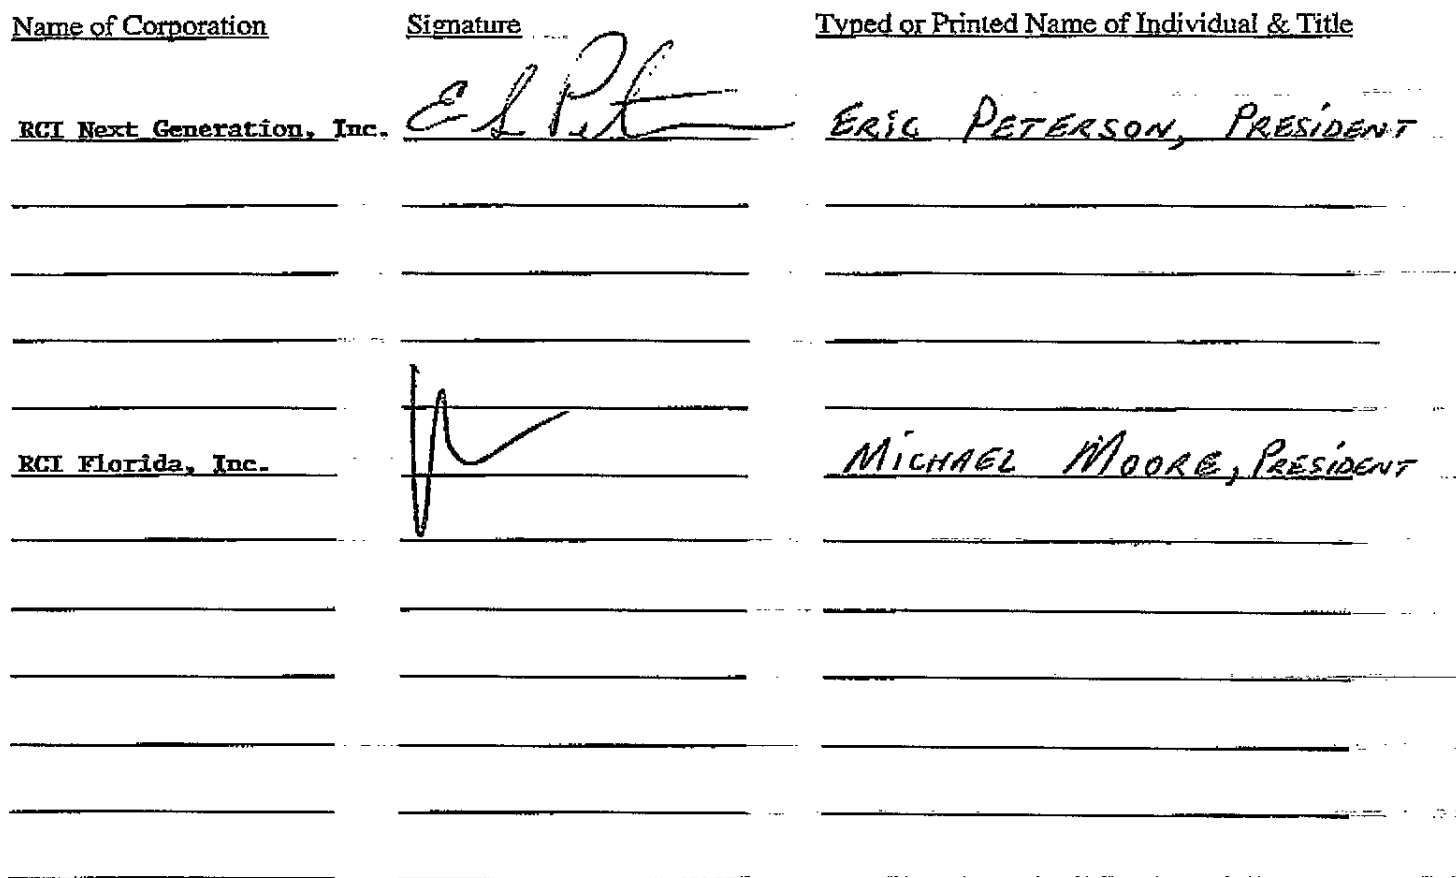 Name of Corporation Signature Typed or Printed Name of Individual & Title
RCI Next Generation, Inc. ERIC PETERSON, PRESIDENT
RCI Florida, Inc. MICHAEL MOORE, PRESIDENT